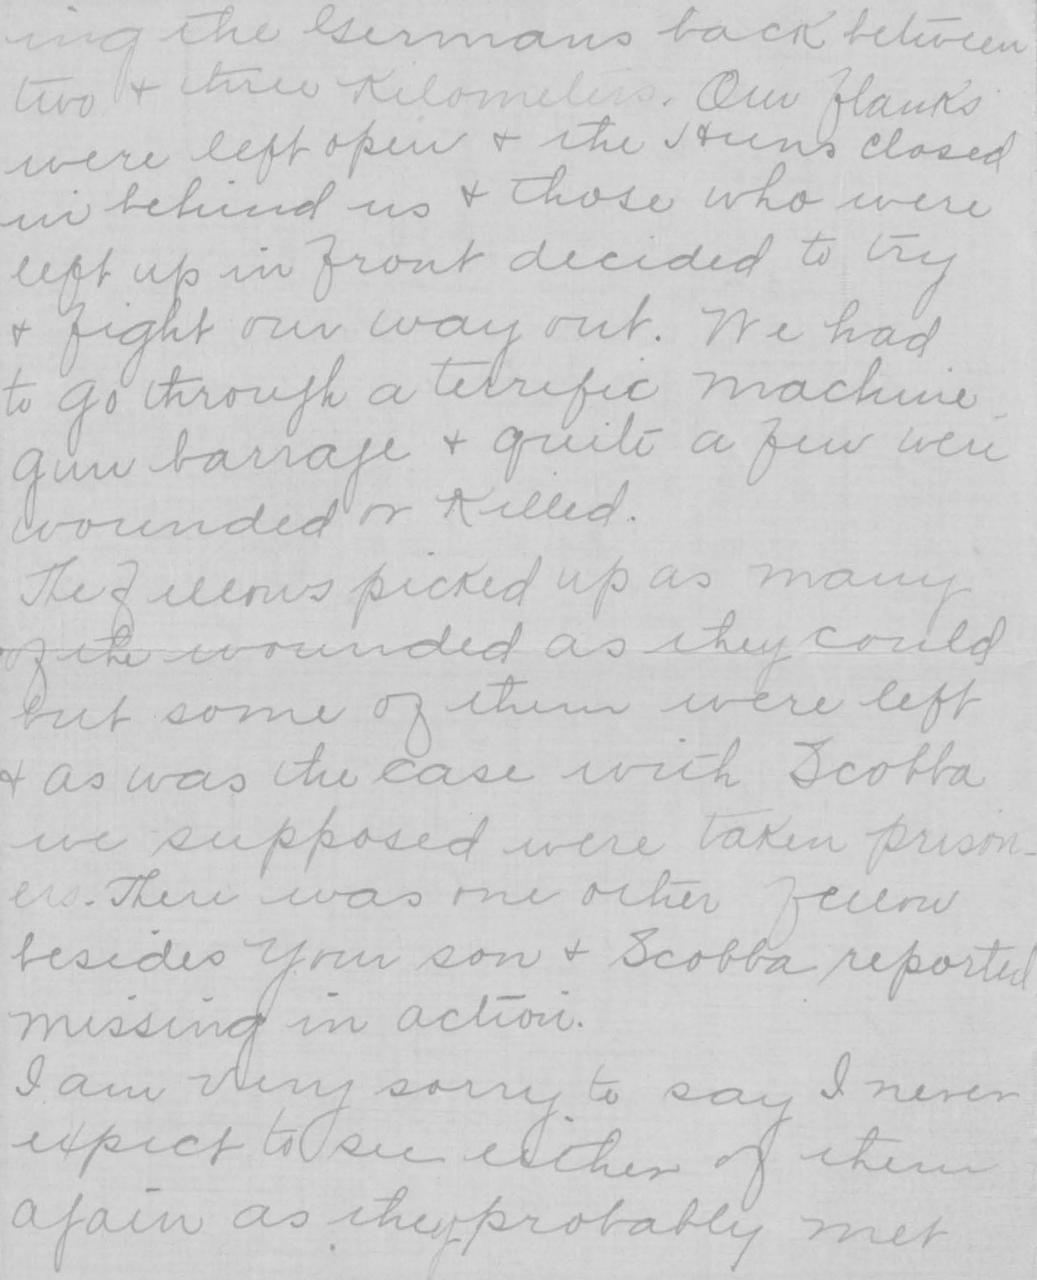 ing the Germans back between
two + three Kilometers. Our flanks
were left open + the Huns closed
in behind us + those who were
left up in front decided to try
+ fight our way out. We had
to go through a terrific machine
gun barrage + quite a few were
wounded or Killed.
The fellows picked up as many
of the wounded as they could
but some of them were left
+ as was the case with Scobba
we supposed were taken prison-
ers. There was one other fellow
besides your son + Scobba reported
missing in action.
I am very sorry to say I never
expect to see either of them
again as they probably met